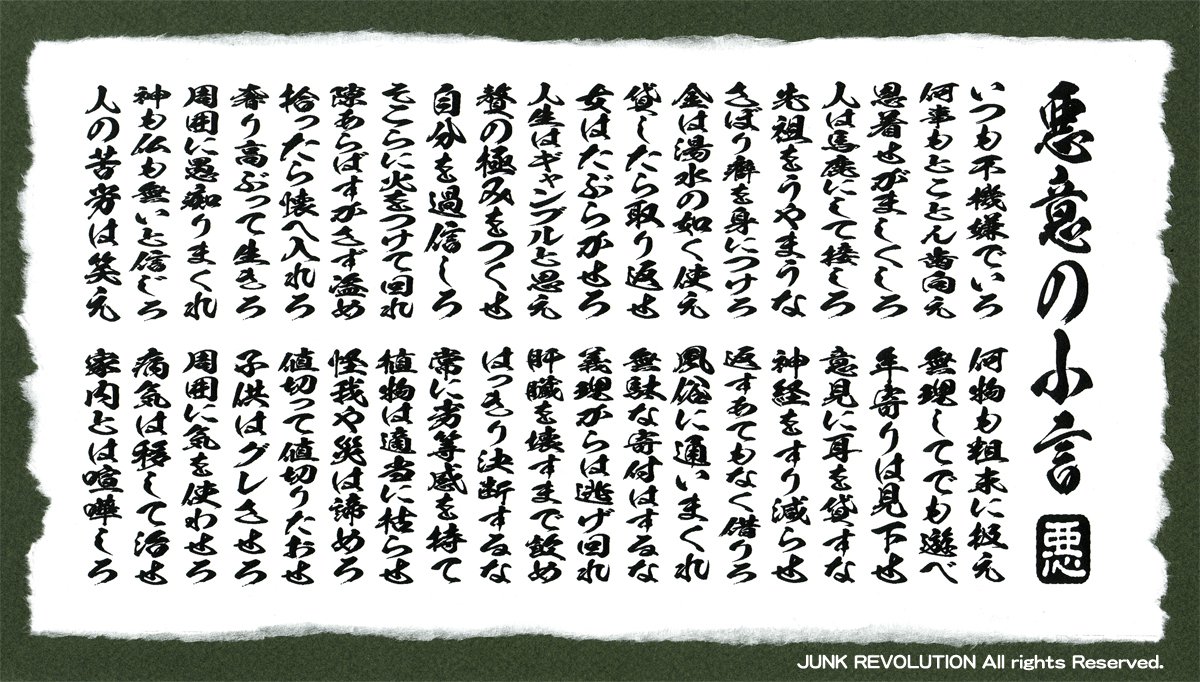 悪意の小言
悪
いつも不機嫌でいろ
何事もとことん歯向え
恩着せがましくしろ
人は馬鹿にして接しろ
先祖をうやまうな
さぼり癖を身につけろ
金は湯水の如く使え
貸したら取り返せ
女はたぶらかせろ
人生はギャンブルと思え
贅の極みをつくせ
自分を過信しろ
そこらに火をつけて回れ
隙あらばすかさず盗め
拾ったら懐へ入れろ
奢り高ぶって生きろ
周囲に愚痴りまくれ
神も仏も無いと信じろ
人の苦労は笑え
何物も粗末に扱え
無理してでも遊べ
年寄りは見下せ
意見に耳を貸すな
神経をすり減らせ
返すあてもなく借りろ
風俗に通いまくれ
無駄な寄付はするな
義理からは逃げ回れ
肝臓を壊すまで飲め
はっきり決断するな
常に劣等感を持て
植物は適当に枯らせ
怪我や災は諦めろ
値切って値切りたおせ
子供はグレさせろ
周囲に気を使わせろ
病気は移して治せ
家内とは喧嘩しろ
JUNK REVOLUTION All rights Reserved.